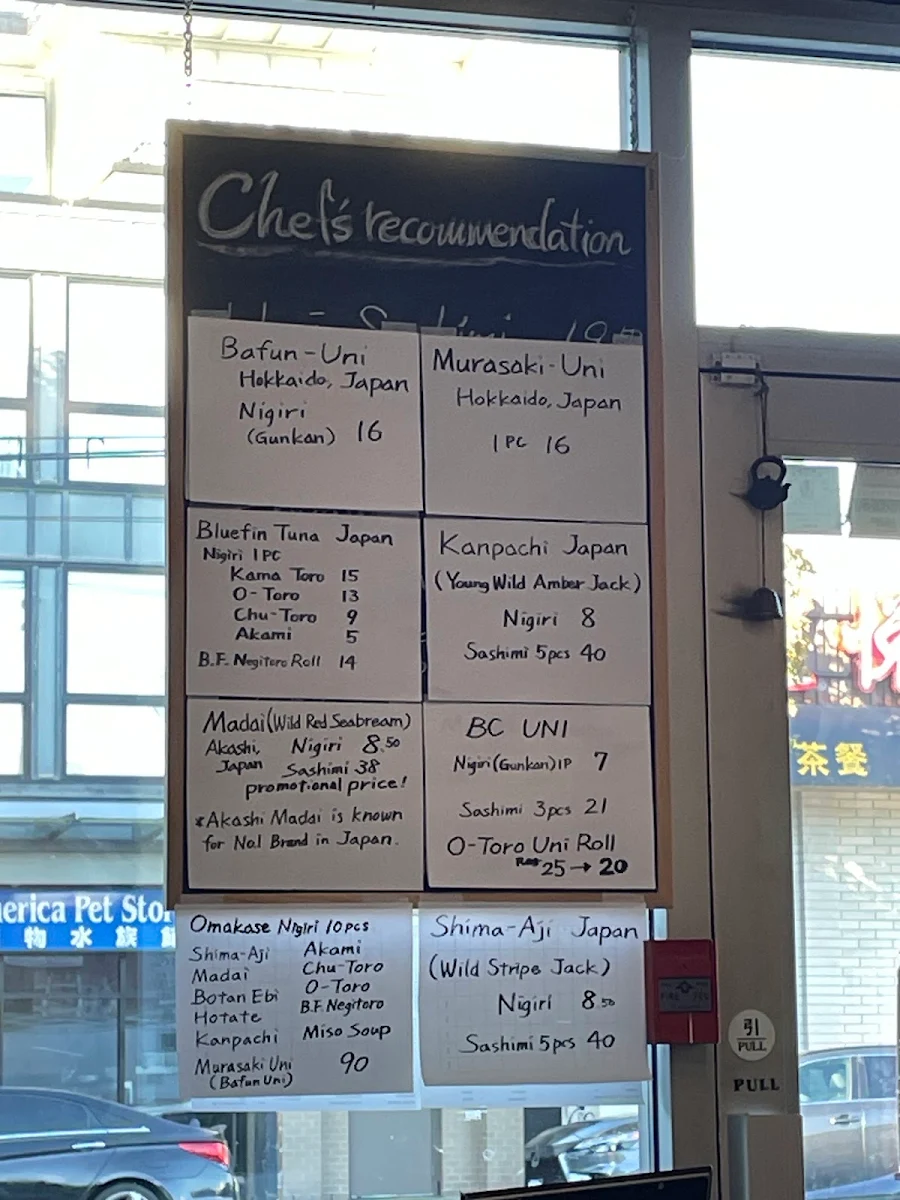 Chef's recommendation
Bafun-Uni
Hokkaido, Japan
Nigiri
(Gunkan) 16
Murasaki-Uni
Hokkaido, Japan
1 PC 16
Bluefin Tuna Japan
Nigiri 1 PC
Kama Toro 15
O-Toro 13
Chu-Toro 9
Akami 5
B.F. Negitoro Roll 14
Kanpachi Japan
(Young Wild Amber Jack)
Nigiri 8
Sashimi 5pcs 40
Madai (Wild Red Seabream)
Akashi, Nigiri 8.50
Japan Sashimi 38
promotional price!
*Akashi Madai is known
for No.1 Brand in Japan.
BC UNI
Nigiri (Gunkan) 1P 7
Sashimi 3pcs 21
O-Toro Uni Roll
Reg 25 → 20
Omakase Nigiri 10pcs
Shima-Aji Akami
Madai Chu-Toro
Botan Ebi O-Toro
Hotate B.F. Negitoro
Kanpachi Miso Soup
Murasaki Uni 90
(Bafun Uni)
Shima-Aji Japan
(Wild Stripe Jack)
Nigiri 8.50
Sashimi 5pcs 40
Pet
物水族
茶餐
引
PULL
PULL